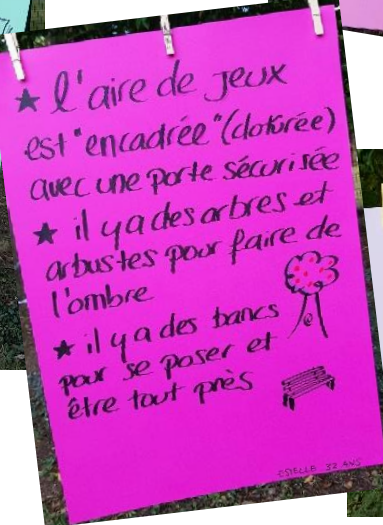 ★ l'aire de jeux
est "encadrée" (cloturée)
avec une porte sécurisée
★ il y a des arbres et
arbustes pour faire de
l'ombre
★ il y a des bancs
pour se poser et
être tout près
ESTELLE 32 ANS